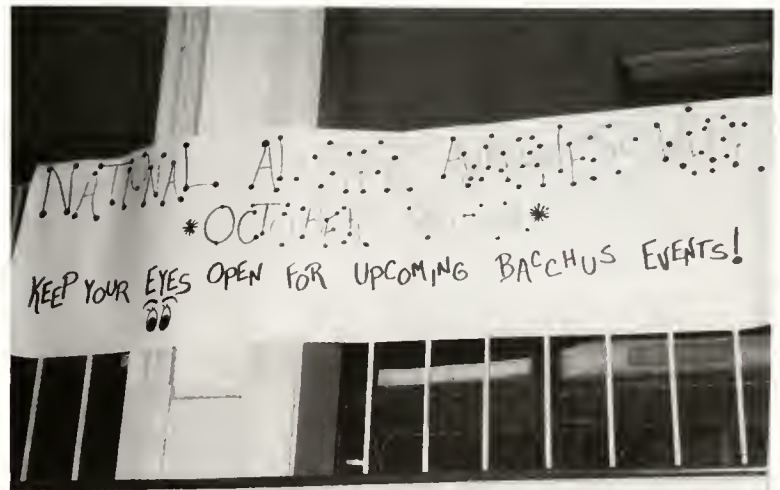 NATIONAL AL AWARENESS
*OCTOBER *
KEEP YOUR EYES OPEN FOR UPCOMING BACCHUS EVENTS!